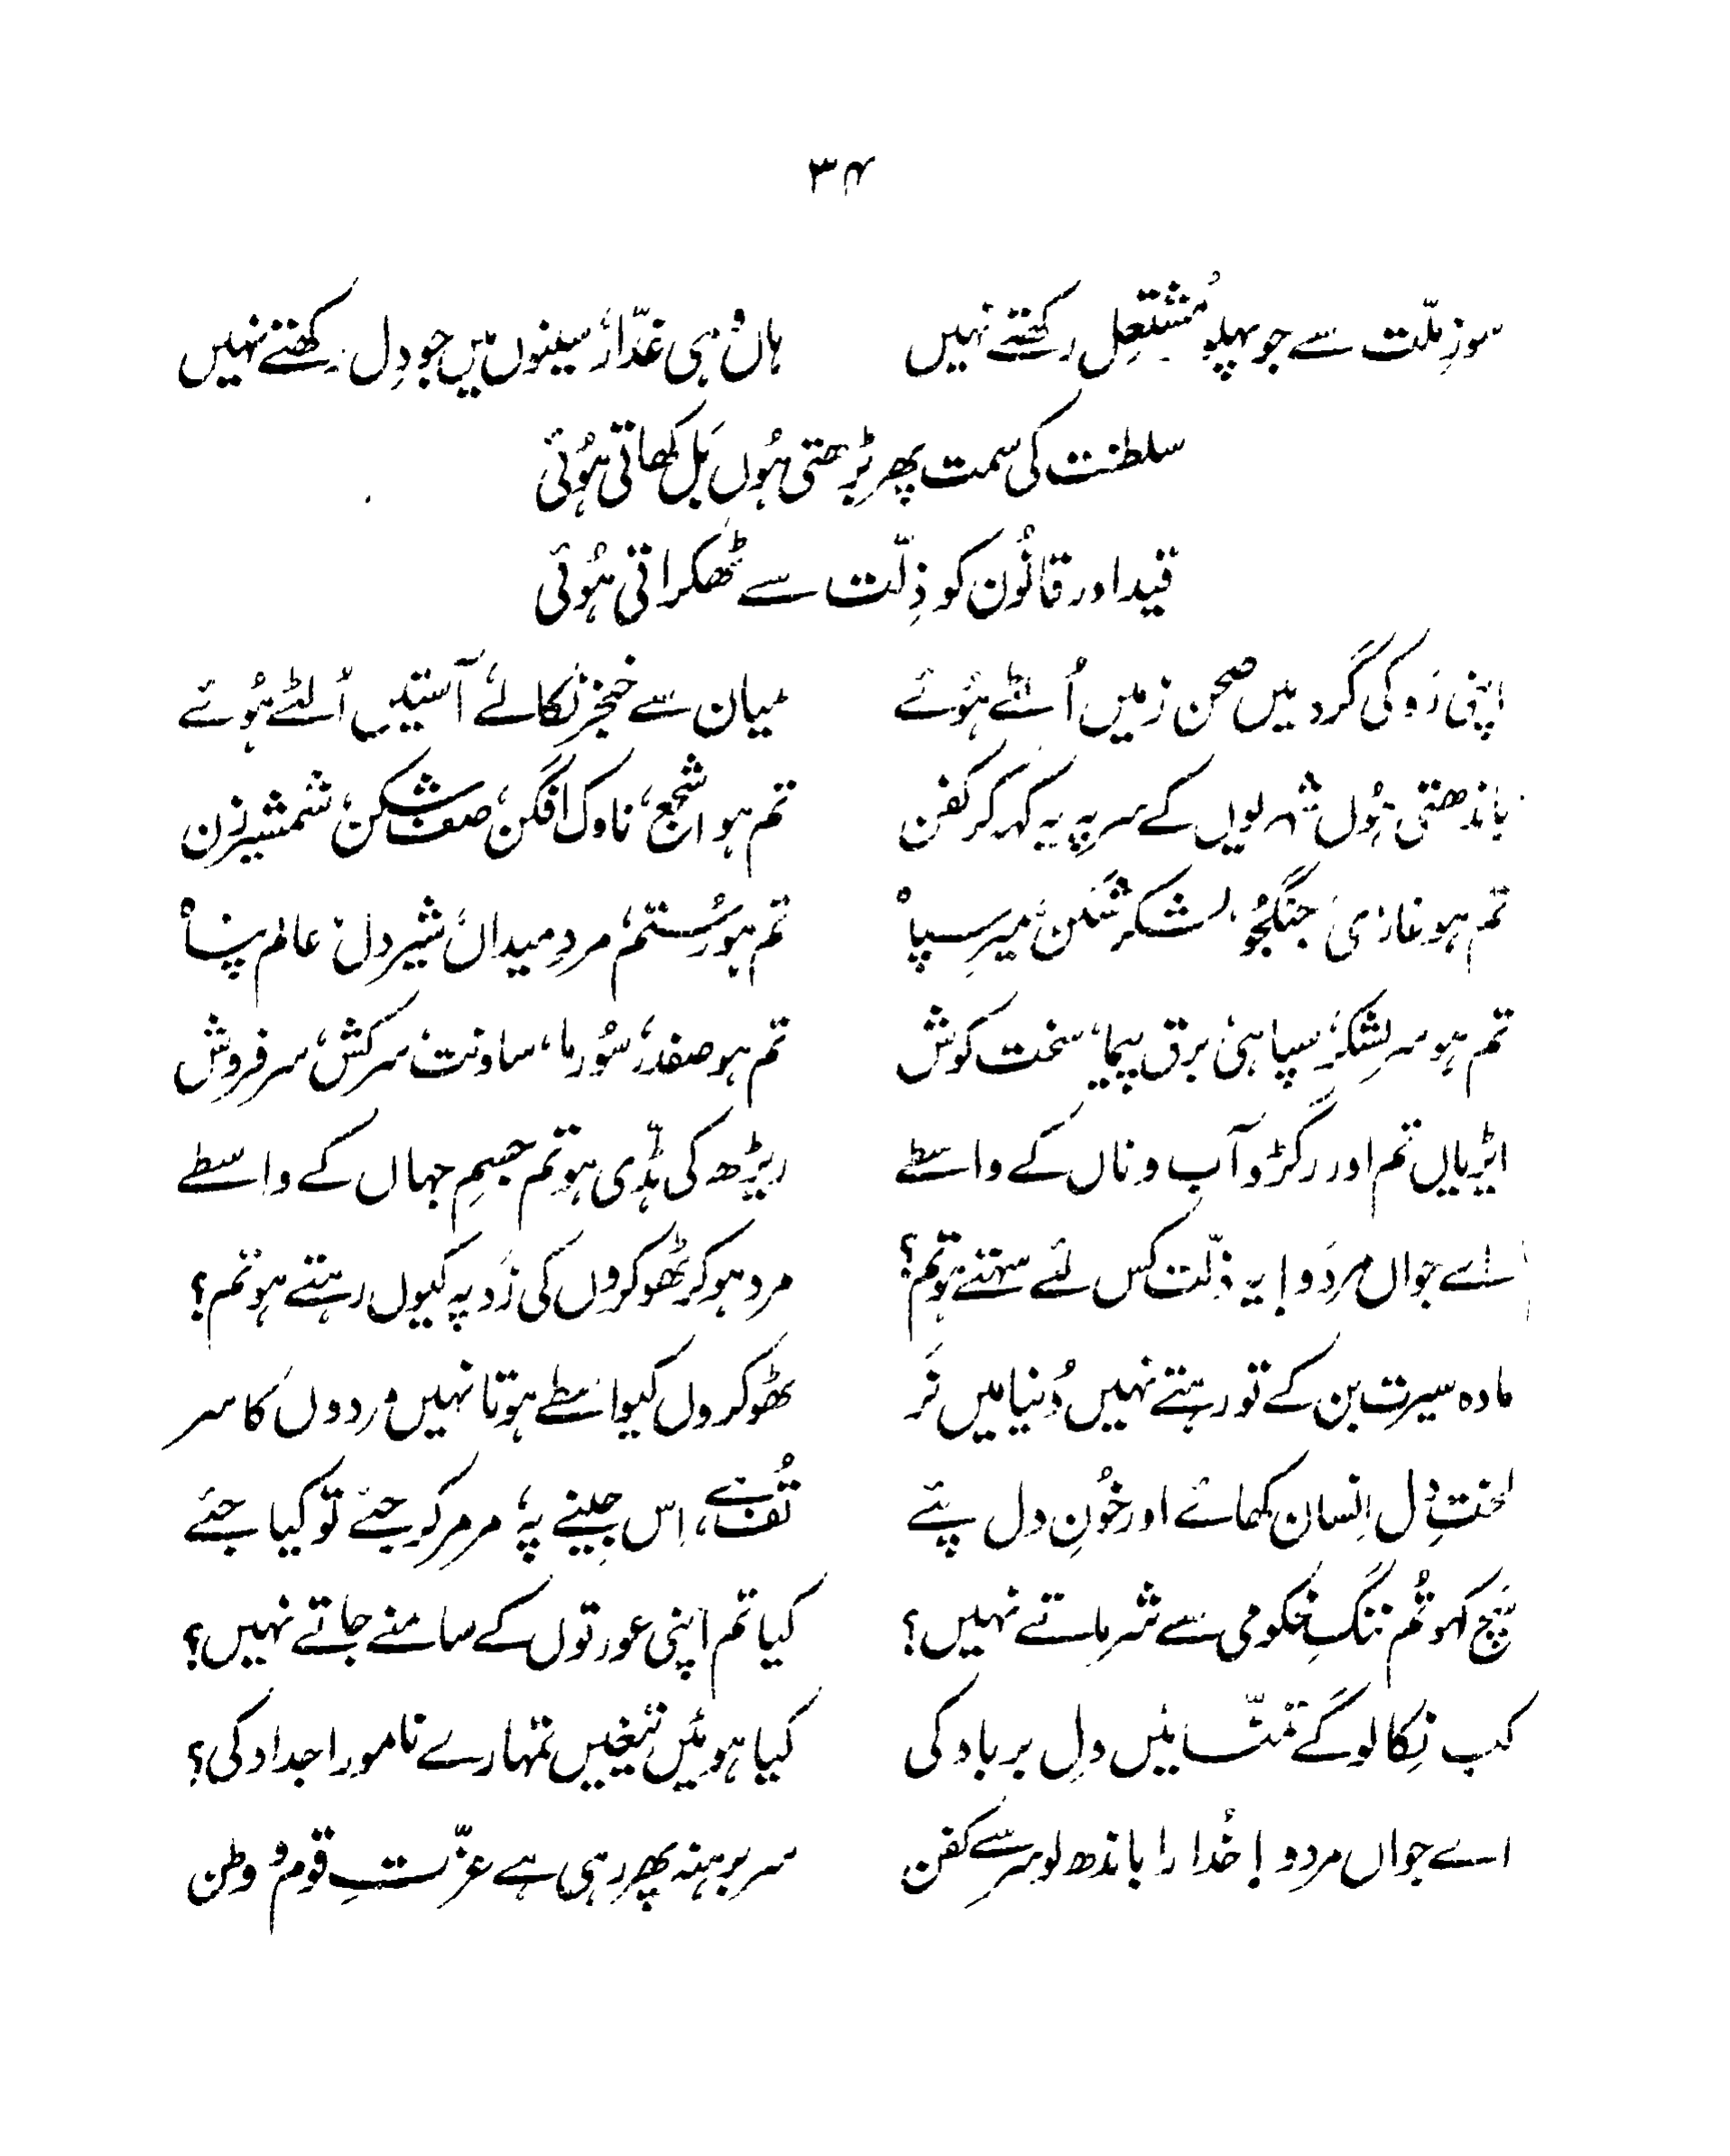 ۳۴
سوزِ ملّت سے جو پہلو مُشتعِل رکھتے نہیں ہاں وُہی غدّار، سینوں میں جو دِل رکھتے نہیں
سلطنت کی سمت پھر بڑھتی ہُوں بَل کھاتی ہُوئی
قید اور قانُون کو ذِلّت سے ٹھکراتی ہُوئی
اپنی رَو کی گرد میں صحن زمیں اُلٹے ہُوئے میان سے خنجر نکالے، آستیں اُلٹے ہُوئے
باندھتی ہُوں شہریوں کے سر پہ یہ کہہ کر کفن تم ہو اشجع، ناوک افگن، صف شکن، شمشیر زن
تم ہو غازی، جنگجُو، لشکر شکن، میرِ سپاہ تم ہو رُستم، مردِ میداں، شیر دل، عالم پناہ
تم ہو سر لشکر، سپاہی، برق پیما، سخت کوش تم ہو صفدر، سُورما، ساونت، سرکش، سر فروش
ایڑیاں تم اور رگڑو آب و ناں کے واسطے ریڑھ کی ہڈّی ہو تم جسمِ جہاں کے واسطے
اے جواں مردَو! یہ ذلّت کس لئے سہتے ہو تم؟ مرد ہو کر ٹھوکروں کی زَد پہ کیوں رہتے ہو تم؟
مادہ سیرت بن کے تو رہتے نہیں دُنیا میں نَر ٹھوکروں کیواسطے ہوتا نہیں مردوں کا سر
لختِ دل اِنسان کھائے اور خُونِ دل پئے تُف ہے، اِس جِینے پہ، مر مر کر جئے تو کیا جئے
سَچ کہو تُم ننگِ محکومی سے شرماتے نہیں؟ کیا تم اپنی عورتوں کے سامنے جاتے نہیں؟
کب نِکالو گے تمنّائیں دلِ برباد کی کیا ہوئیں تیغیں تمہارے نامور اجداد کی؟
اے جواں مردو! خُدارا باندھ لو سر سے کفن سر برہنہ پھر رہی ہے عزّتِ قوم و وطن